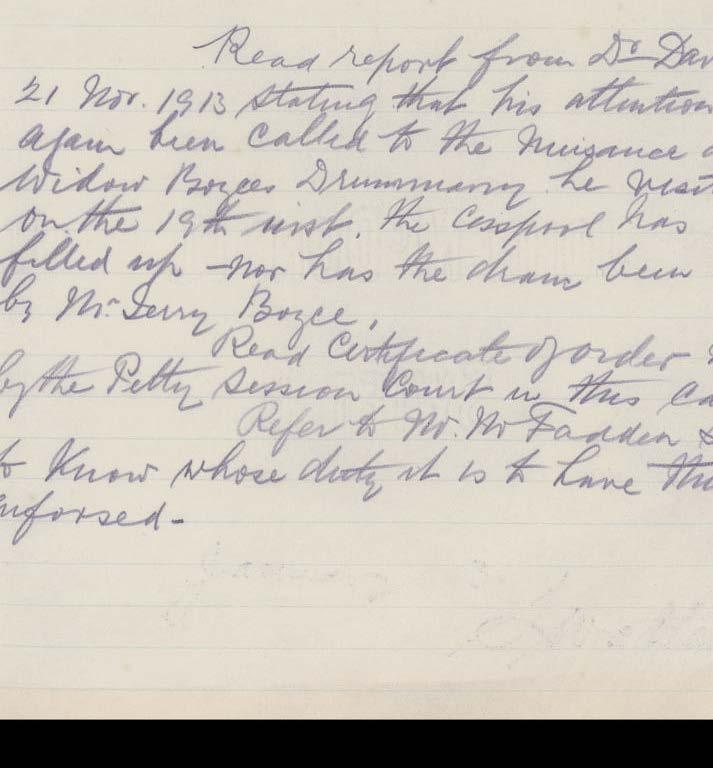 Read report from Dr Dav
21 Nov. 1913 stating that his attention
again been called to the Nuisance a
Widow Boyces Drummany he visit
on the 19th inst. the Cesspool has
filled up - nor has the drain been
by Mr Jerry Boyce.
Read Certificate of order
by the Petty Session Court in this ca
Refer to Mr. McFadden S
to Know whose duty it is to have this
enforsed -